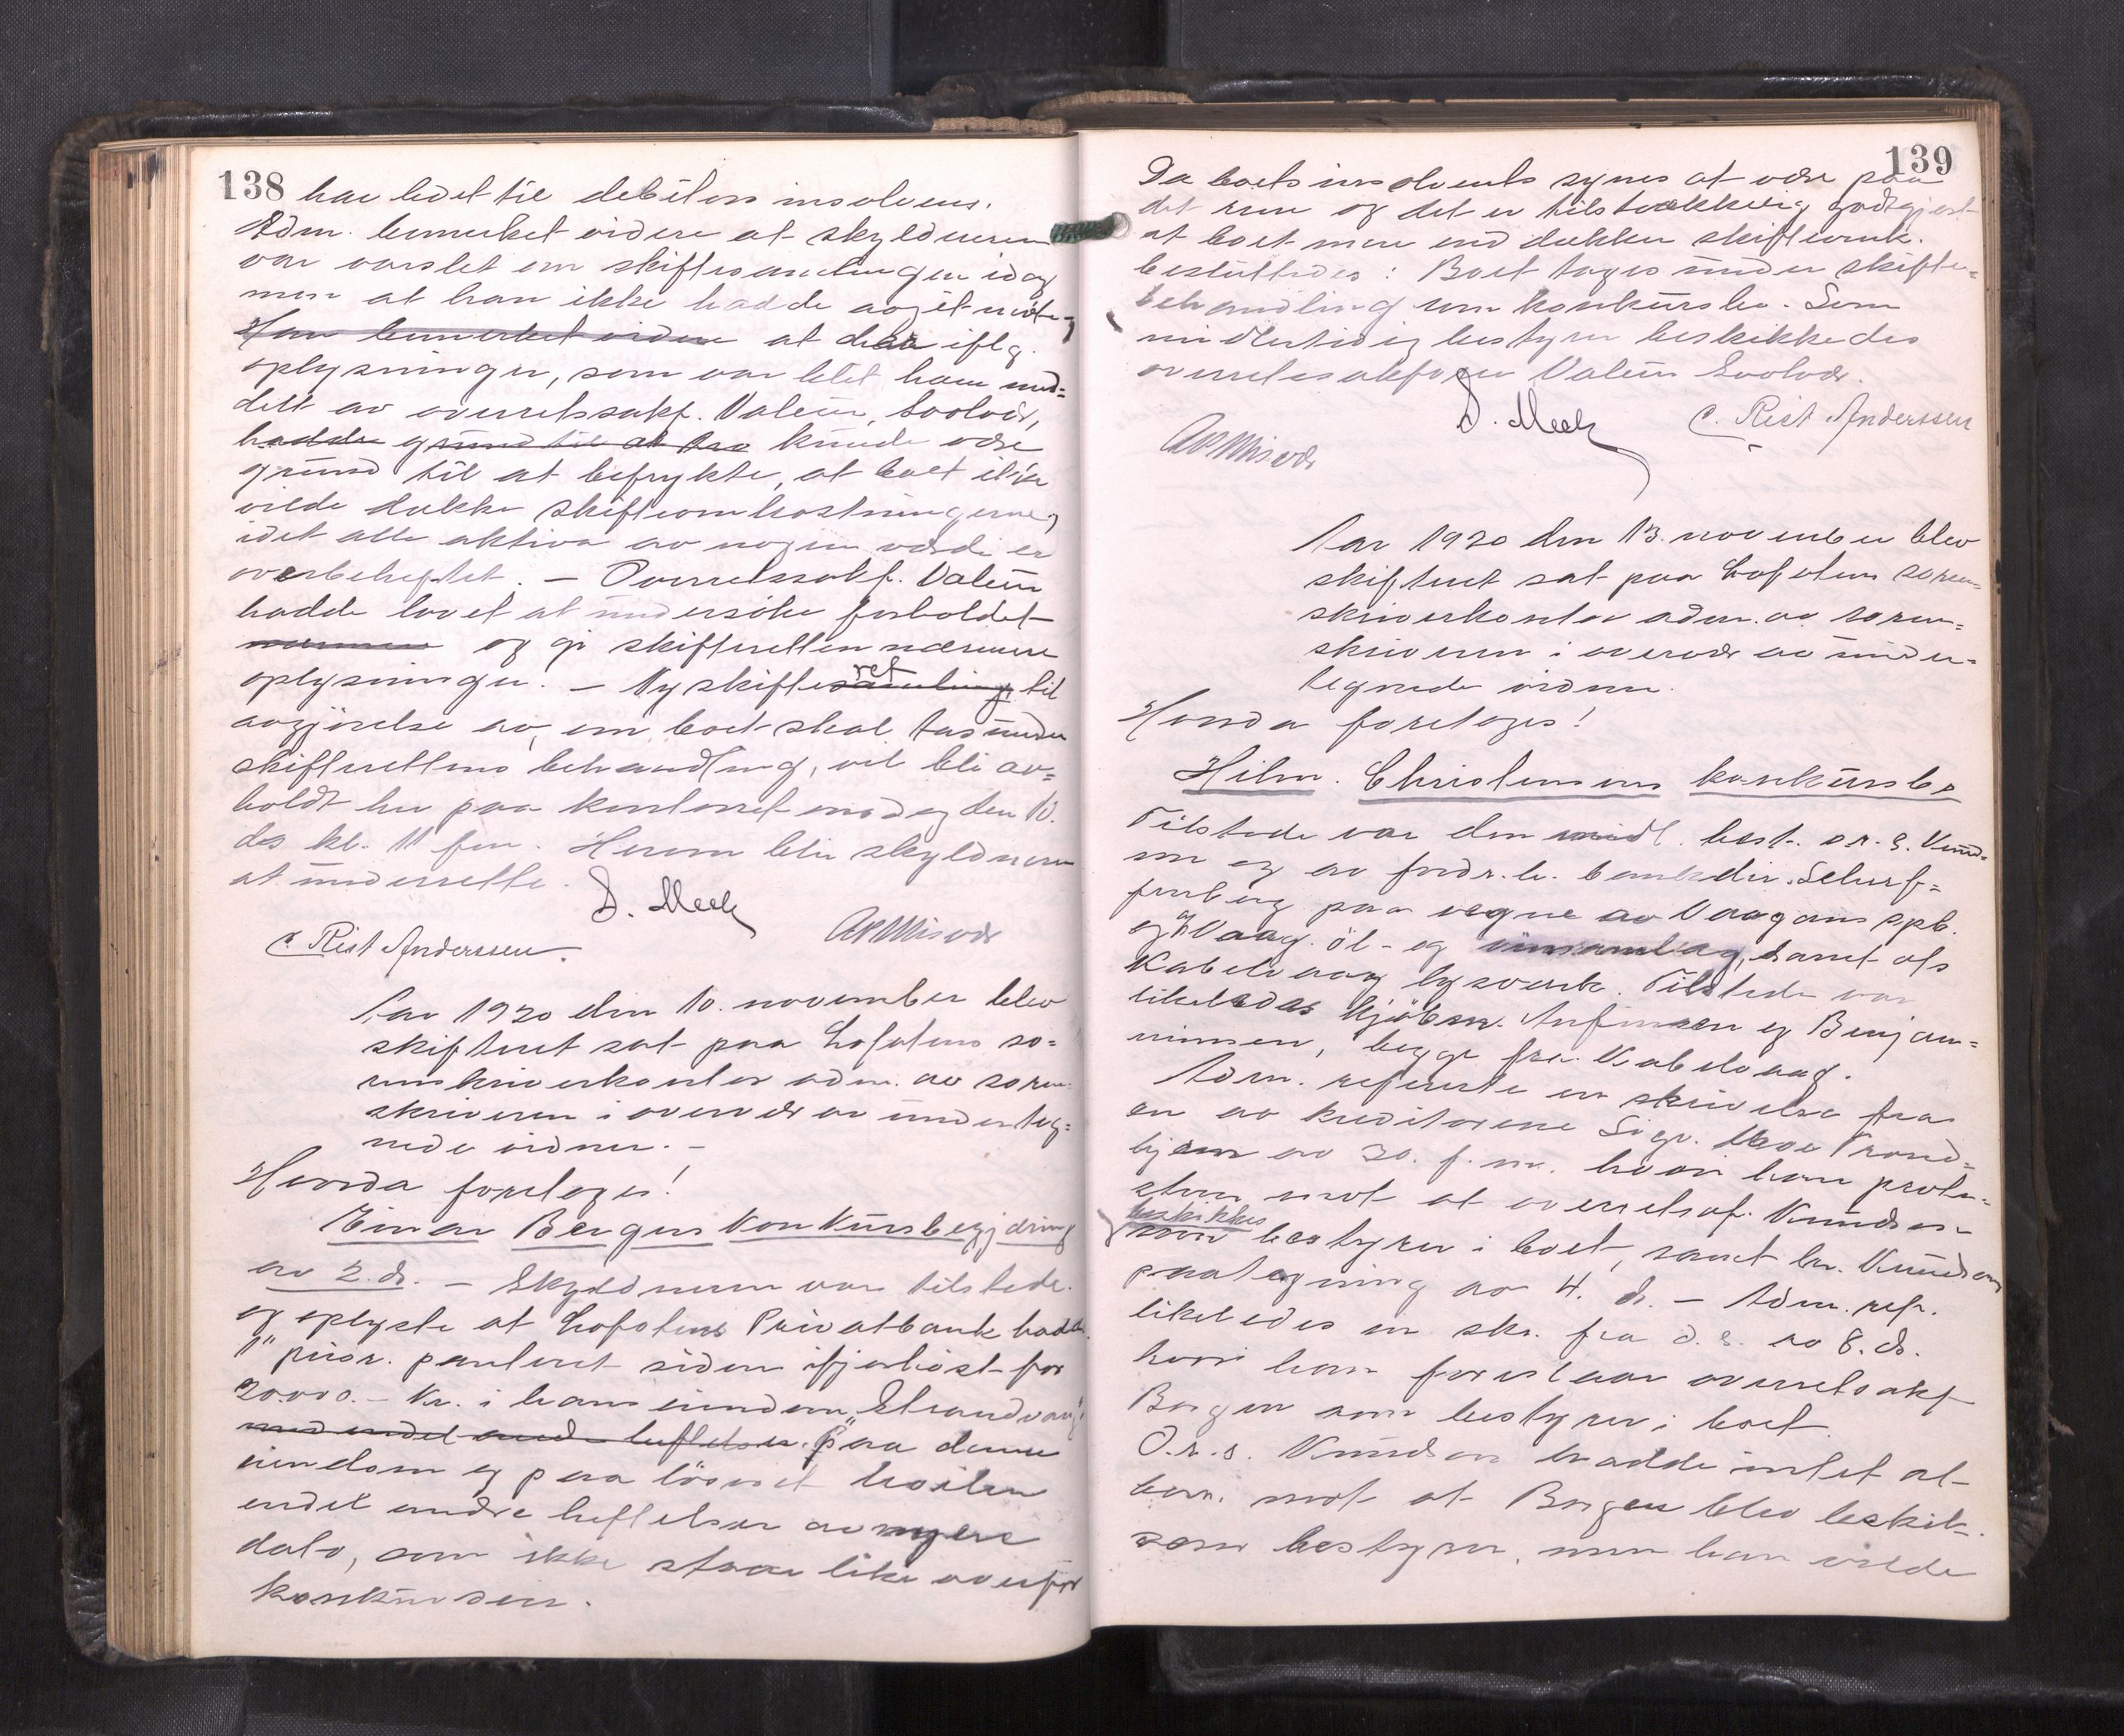 138
har ledet til debitors insolvens.
Adm. bemerket videre at skyldneren
var varslet om skiftesamlingen idag
men at han ikke hadde avgit møte,
Han bemerket videre at der iflg.
oplysninger, som var blet ham med=
delt av overretssakf. Valeur, Svolvær,
hadde grund til at tro kunde være
grund til at befrykte, at boet ikke
vilde dække skifteomkostningerne,
idet alle aktiva av nogen værdi er
overbeheftet. – Overretssakf. Valeur
hadde lovet at undersøke forholdet
nærmere og gi skifteretten nærmere
oplysninger. – Ny skiftesamling ret til
avgjørelse av, om boet skal tas under
skifterettens behandling, vil bli av=
holdt her paa kontoret onsdag den 10.
ds kl. 11 fm. Herom blir skyldneren
at underrette.
D. Meek
C. Rist Anderssen.
Aar 1920 den 10. november blev
skifteret sat paa Lofotens so=
renskriverkontor adm. av soren
skriveren i overvær av underteg=
nede vidner. –
Hvorda foretoges!
Einar Bergers Konkursbegjæring
av 2. ds. – Skyldneren var tilstede.
og oplyste at Lofotens Privatbank hadde
1" prior. panteret siden ifjorhøst for
20.000.– Kr. i hans eiendom „Strandvang"
med endel andre heftelser. Paa denne
eiendom og paa løsøret hviler
endel andre heftelser av nyere
dato, som ikke staar like overfor
konkursen.
139
Da boets insolvents synes at være paa
det rene og det er tilstrækkelig godtgjort
at boet mere end dækker skifteomk.
besluttedes: Boet tages under skifte=
behandling som konkursbo. Som
midlertidig bestyrer beskikkedes
overretssakfører Valeur Svolvær.
D. Meek C. Rist Anderssen
Aar 1920 den 13. november blev
skifteret sat paa Lofotens soren=
skriverkontor adm. av soren=
skriveren i overvær av under=
tegnede vidner.
Hvorda foretoges!
Hilm. Christensens konkursbo
Tilstede var den midl. best. o.r.s. Knud=
sen og av fordr.h. bankdir. Scharf=
fenberg paa vegne av Vaagans spb.
og Vaag. øl- og vinsamlag, samt ofs
Kabelvaag lysverk. Tilstede var
likeledes kjøbm. Anfinsen og Benjam=
minsen, begge fra Kabelvaag.
Adm. refererte en skrivelse fra
en av kreditorene Sigv. Moe Trond=
hjem av 30. f.m. hvori han prote=
sterer mot at overretssf. Knudsen
beskikkes
som bestyrer i boet, samt hr. Knudsens
paategning av 4. ds. – Adm. ref.
likeledes en skr. fra d.s. av 8. ds.
hvori han foreslaar overretssakf
Borgen som bestyrer i boet.
O.r.s. Knudsen hadde intet at
bem. mot at Borgen blev beskik.
som bestyrer, men han vilde